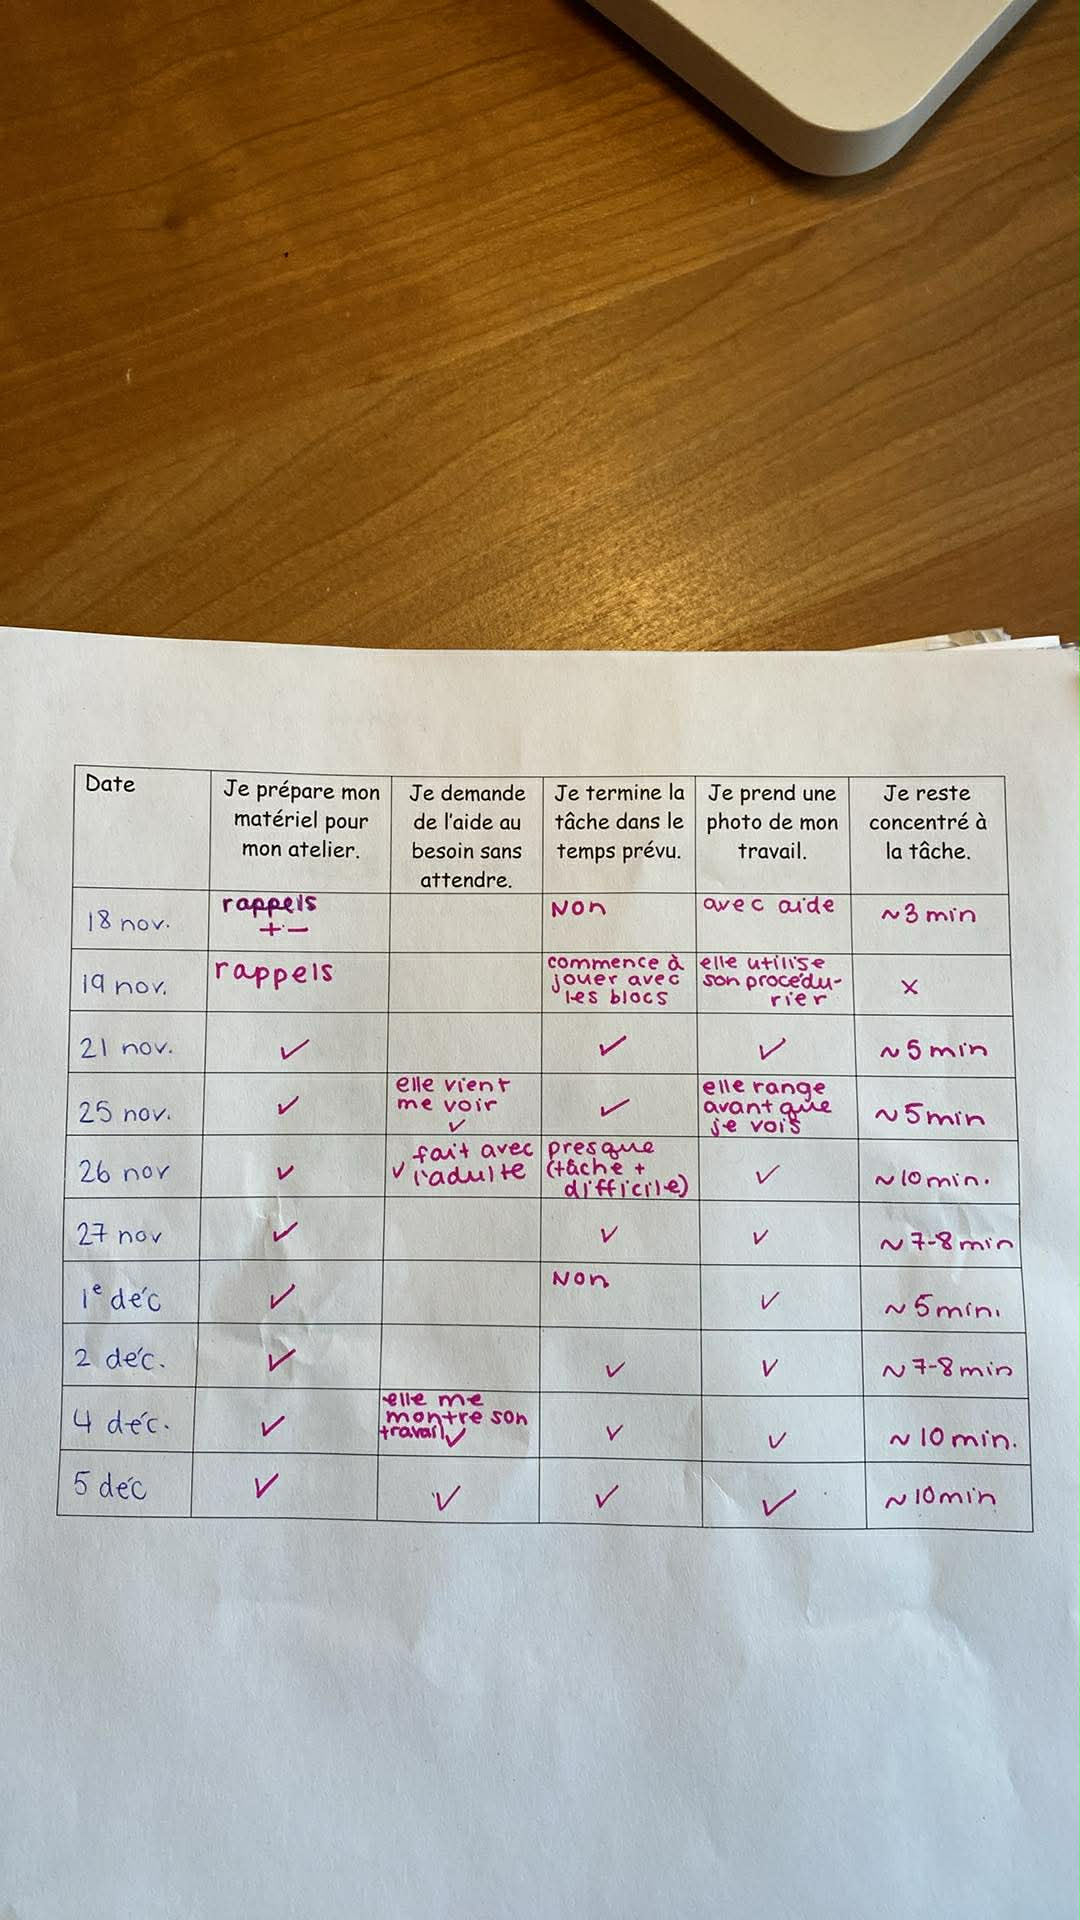 Date
Je prépare mon
matériel pour
mon atelier.
Je demande
de l'aide au
besoin sans
attendre.
Je termine la
tâche dans le
temps prévu.
Je prend une
photo de mon
travail.
Je reste
concentré à
la tâche.
18 nov.
rappels
+-
Non
avec aide
~3 min
19 nov.
rappels
commence à
jouer avec
les blocs
elle utilise
son procédu-
rier
x
21 nov.
✓
✓
✓
~5 min
25 nov.
✓
elle vient
me voir
✓
✓
elle range
avant que
je vois
~5min
26 nov
✓
fait avec
✓ l'adulte
presque
(tâche +
difficile)
✓
~10min.
27 nov
✓
✓
✓
~7-8min
1e déc
✓
Non
✓
~5min.
2 déc.
✓
✓
✓
~7-8min
4 déc.
✓
elle me
montre son
travail ✓
✓
✓
~10min.
5 déc
✓
✓
✓
✓
~10min